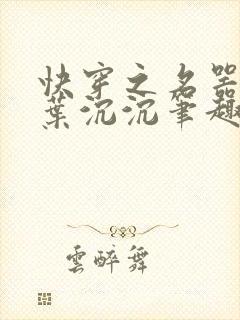 快穿之名器
葉沉沉筆趣
雲醉舞